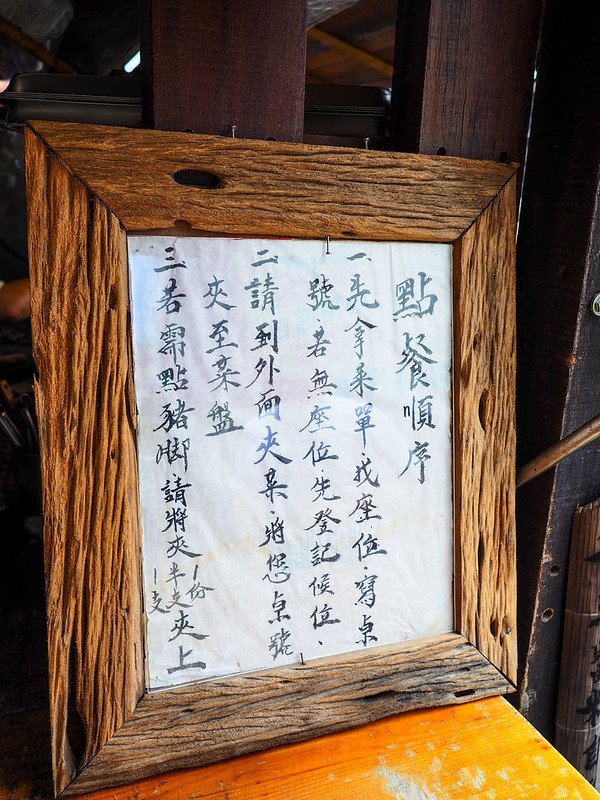 點餐順序
一、先拿菜單、找座位、寫桌
號、若無座位、先登記候位、
二、請到外面夾菜、將您桌號
夾至菜盤
三、若需點豬腳請將夾一份半支一支夾上